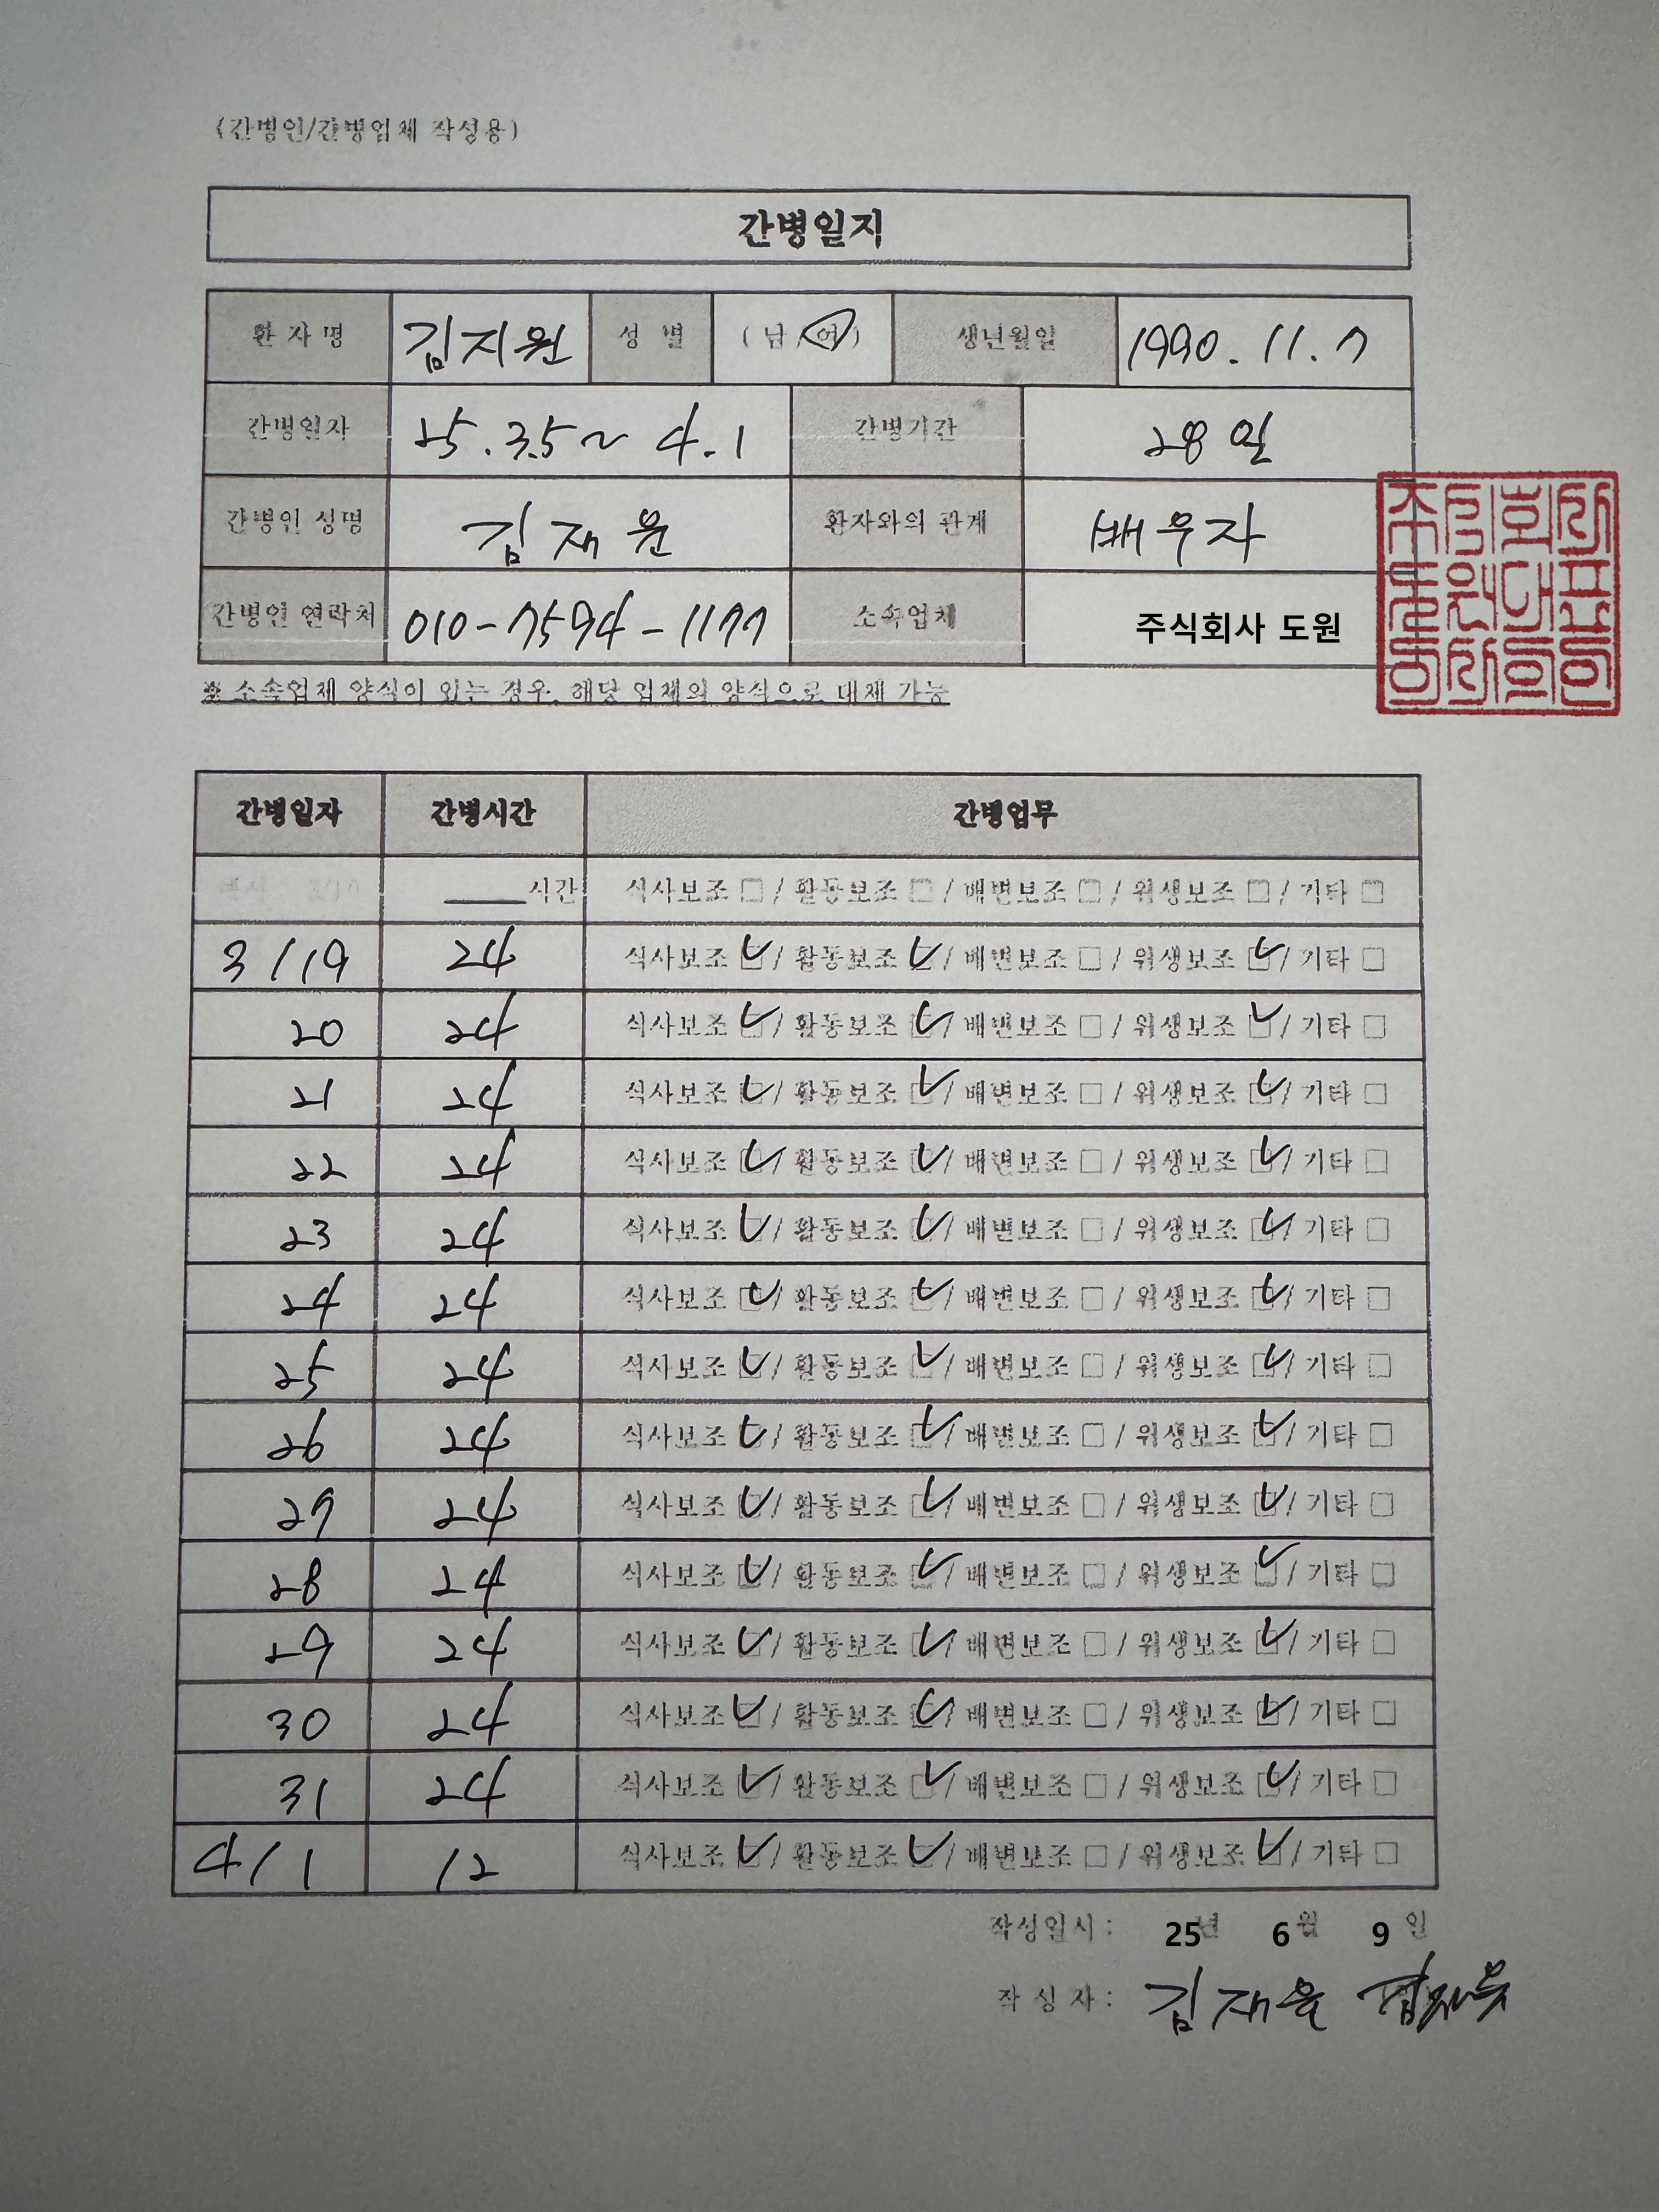 (간병인/간병업체 작성용)
간병일지
환 자 명 김지원 성 별 ( 남 / 여 ) 생년월일 1990. 11. 7
간병일자 25. 3.5 ~ 4. 1 간병기간 28일
간병인 성명 김재윤 환자와의 관계 배우자
간병인 연락처 010-7594-1177 소속업체 주식회사 도원
※ 소속업체 양식이 있는 경우, 해당 업체의 양식으로 대체 가능
간병일자 간병시간 간병업무
시간 식사보조 □ / 활동보조 □ / 배변보조 □ / 위생보조 □ / 기타 □
3/19 24 식사보조 ☑ / 활동보조 ☑ / 배변보조 □ / 위생보조 ☑ / 기타 □
20 24 식사보조 ☑ / 활동보조 ☑ / 배변보조 □ / 위생보조 ☑ / 기타 □
21 24 식사보조 ☑ / 활동보조 ☑ / 배변보조 □ / 위생보조 ☑ / 기타 □
22 24 식사보조 ☑ / 활동보조 ☑ / 배변보조 □ / 위생보조 ☑ / 기타 □
23 24 식사보조 ☑ / 활동보조 ☑ / 배변보조 □ / 위생보조 ☑ / 기타 □
24 24 식사보조 ☑ / 활동보조 ☑ / 배변보조 □ / 위생보조 ☑ / 기타 □
25 24 식사보조 ☑ / 활동보조 ☑ / 배변보조 □ / 위생보조 ☑ / 기타 □
26 24 식사보조 ☑ / 활동보조 ☑ / 배변보조 □ / 위생보조 ☑ / 기타 □
27 24 식사보조 ☑ / 활동보조 ☑ / 배변보조 □ / 위생보조 ☑ / 기타 □
28 24 식사보조 ☑ / 활동보조 ☑ / 배변보조 □ / 위생보조 ☑ / 기타 □
29 24 식사보조 ☑ / 활동보조 ☑ / 배변보조 □ / 위생보조 ☑ / 기타 □
30 24 식사보조 ☑ / 활동보조 ☑ / 배변보조 □ / 위생보조 ☑ / 기타 □
31 24 식사보조 ☑ / 활동보조 ☑ / 배변보조 □ / 위생보조 ☑ / 기타 □
4/1 12 식사보조 ☑ / 활동보조 ☑ / 배변보조 □ / 위생보조 ☑ / 기타 □
작성일시 : 25년 6월 9일
작 성 자 : 김재윤